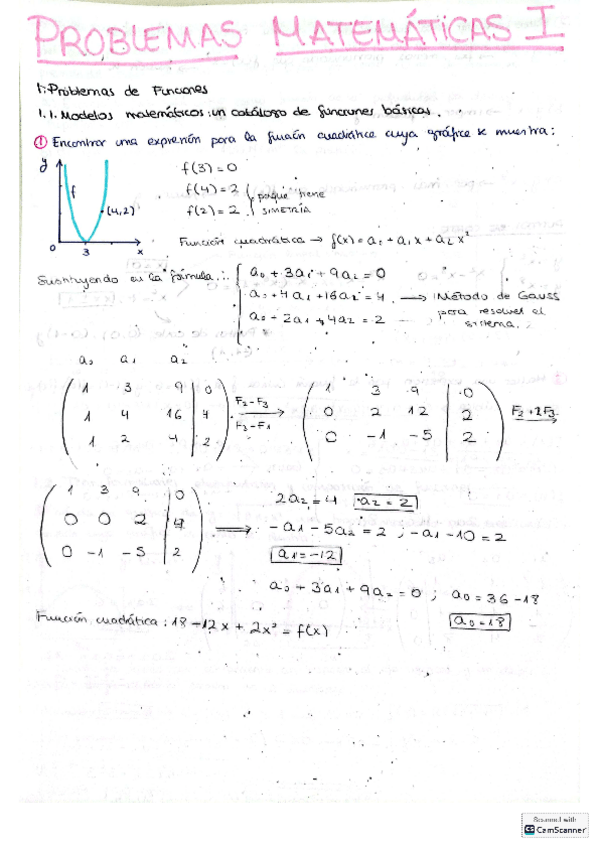 PROBLEMAS MATEMÁTICAS I
1. Problemas de Funciones
1.1. Modelos matemáticos: un catálogo de funciones básicas.
① Encontrar una expresión para la función cuadrática cuya gráfica se muestra:
y
f
(4,2)
0 3 x
f(3)=0
f(4)=2
f(2)=2
porque tiene
SIMETRÍA
Función cuadrática → f(x)= a₀ + a₁x + a₂x²
Sustituyendo en la fórmula:
a₀ + 3a₁ + 9a₂ = 0
a₀ + 4a₁ + 16a₂ = 4
a₀ + 2a₁ + 4a₂ = 2
→ Método de Gauss
para resolver el
sistema.
a₀ a₁ a₂
1 3 9 | 0
1 4 16 | 4
1 2 4 | 2
F₂-F₃
F₃-F₁
1 3 9 | 0
0 2 12 | 2
0 -1 -5 | 2
F₂+2F₃
1 3 9 | 0
0 0 2 | 4
0 -1 -5 | 2
2a₂ = 4 a₂ = 2
-a₁ - 5a₂ = 2 ; -a₁ - 10 = 2
a₁ = -12
a₀ + 3a₁ + 9a₂ = 0 ; a₀ = 36 - 18
a₀ = 18
Función cuadrática: 18 - 12x + 2x² = f(x)
Scanned with
CS CamScanner